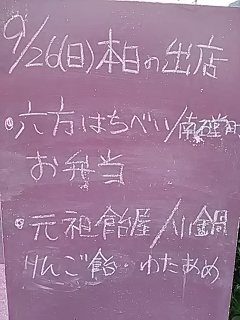 9/26(日)本日の出店
・六方はちべい/南碰町
お弁当
・元祖飴屋/川鍋
りんご飴・わたあめ